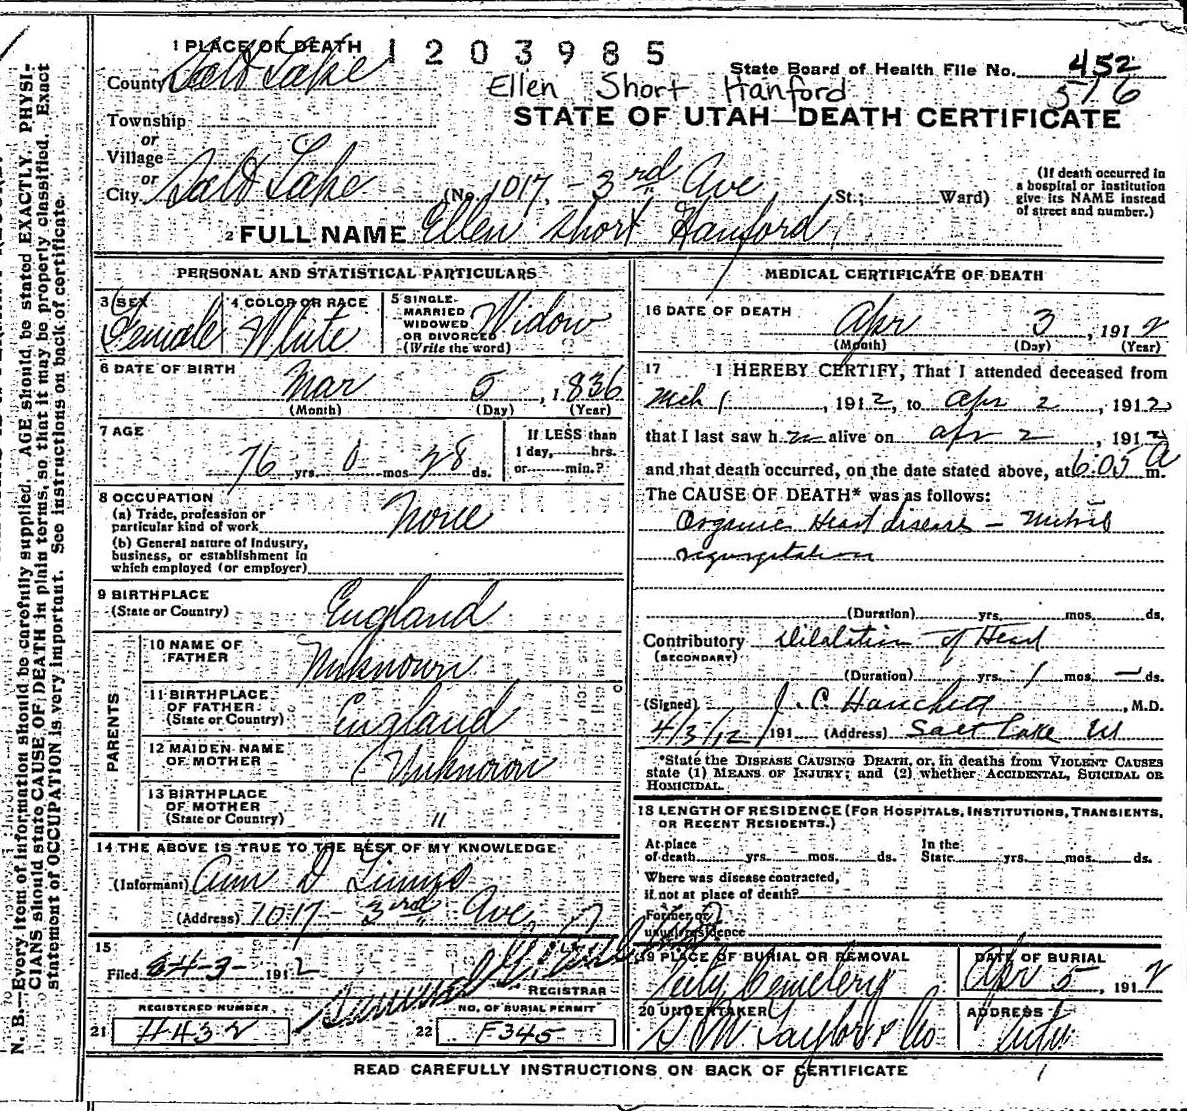 1 PLACE OF DEATH
1203985
County Salt Lake
State Board of Health File No. 452
576
Ellen Short Hanford
STATE OF UTAH—DEATH CERTIFICATE
Township
or
Village
or
City Salt Lake (No. 1017 - 3rd Ave St.; Ward)
(If death occurred in
a hospital or institution
give its NAME instead
of street and number.)
2 FULL NAME Ellen Short Hanford
PERSONAL AND STATISTICAL PARTICULARS
3 SEX Female
4 COLOR OR RACE White
5 SINGLE-
MARRIED
WIDOWED
OR DIVORCED
(Write the word) Widow
6 DATE OF BIRTH
Mar 5, 1836
(Month) (Day) (Year)
7 AGE
76 yrs. 0 mos 28 ds.
If LESS than
1 day, hrs.
or min.?
8 OCCUPATION
(a) Trade, profession or
particular kind of work None
(b) General nature of Industry,
business, or establishment in
which employed (or employer)
9 BIRTHPLACE
(State or Country) England
PARENTS
10 NAME OF
FATHER Unknown
11 BIRTHPLACE
OF FATHER
(State or Country) England
12 MAIDEN NAME
OF MOTHER Unknown
13 BIRTHPLACE
OF MOTHER
(State or Country) "
14 THE ABOVE IS TRUE TO THE BEST OF MY KNOWLEDGE
(Informant) Ann D
(Address) 1017 3rd Ave
15
Filed 4-3- 1912
REGISTRAR
REGISTERED NUMBER
21 H432
NO. OF BURIAL PERMIT
22 F345
MEDICAL CERTIFICATE OF DEATH
16 DATE OF DEATH
Apr 3, 1912
(Month) (Day) (Year)
17 I HEREBY CERTIFY, That I attended deceased from
Mch 1, 1912, to Apr 2, 1912
that I last saw her alive on Apr 2, 1912
and that death occurred, on the date stated above, at 6:05 A m.
The CAUSE OF DEATH* was as follows:
Organic Heart disease - Mitral
regurgitation
(Duration) yrs. mos. ds.
Contributory Dilalition of Heart
(SECONDARY)
(Duration) yrs. 1 mos. — ds.
(Signed) J. C. Hanchett, M.D.
4/3/12 191 (Address) Salt Lake Ut
*State the DISEASE CAUSING DEATH, or, in deaths from VIOLENT CAUSES
state (1) MEANS OF INJURY; and (2) whether ACCIDENTAL, SUICIDAL OR
HOMICIDAL.
18 LENGTH OF RESIDENCE (FOR HOSPITALS, INSTITUTIONS, TRANSIENTS,
OR RECENT RESIDENTS.)
At place
of death yrs. mos. ds.
In the
State yrs. mos. ds.
Where was disease contracted,
if not at place of death?
Former or
usual residence
19 PLACE OF BURIAL OR REMOVAL
City Cemetery
DATE OF BURIAL
Apr 5, 1912
20 UNDERTAKER
S M Taylor & Co
ADDRESS
City
READ CAREFULLY INSTRUCTIONS ON BACK OF CERTIFICATE
N. B.—Every item of information should be carefully supplied. AGE should be stated EXACTLY. PHYSI-
CIANS should state CAUSE OF DEATH in plain terms, so that it may be properly classified. Exact
statement of OCCUPATION is very important. See instructions on back of certificate.